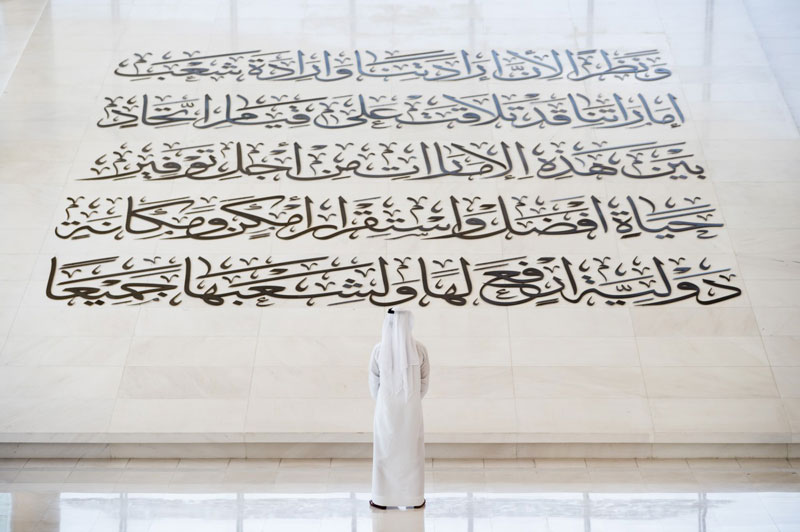 ونظراً لأنَّ إرادتنا وإرادة شعب
إماراتنا قد تلاقت على قيام اتّحاد
بين هذه الإمارات من أجل توفير
حياة أفضل واستقرار أمكن ومكانة
دوليّة أرفع لها ولشعبها جميعًا